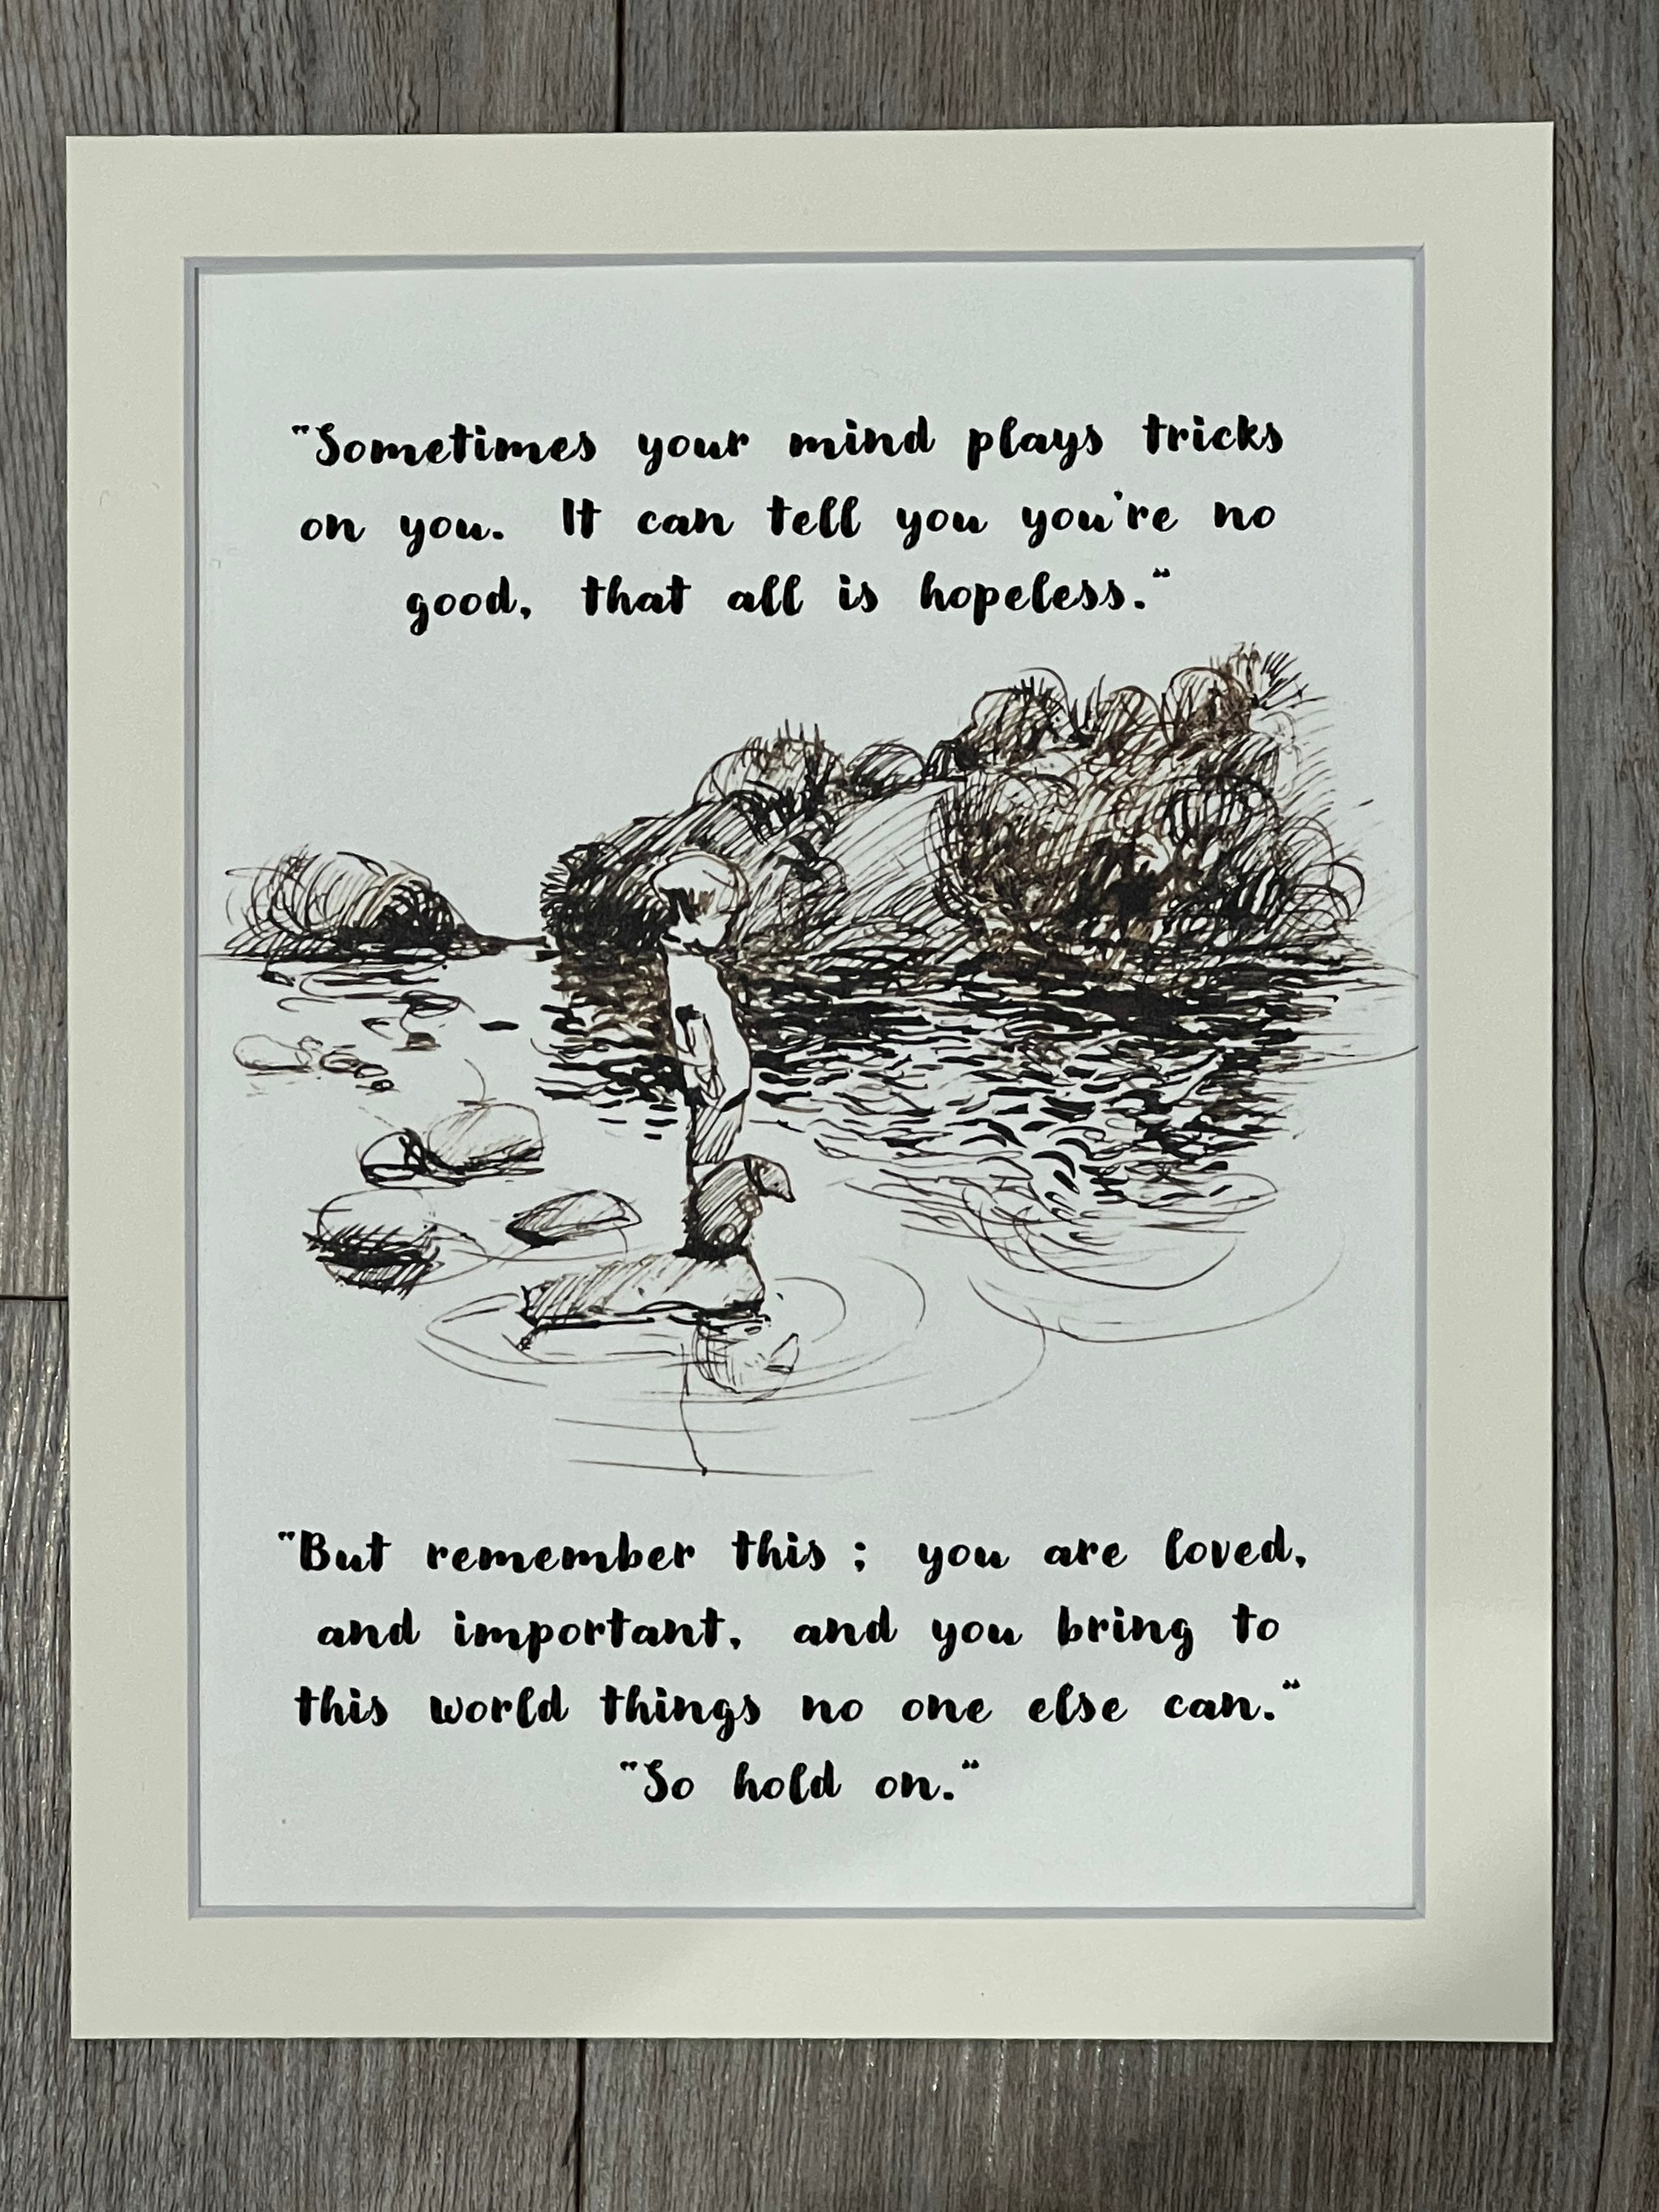 "Sometimes your mind plays tricks
on you. It can tell you you're no
good, that all is hopeless."
"But remember this ; you are loved,
and important, and you bring to
this world things no one else can."
"So hold on."